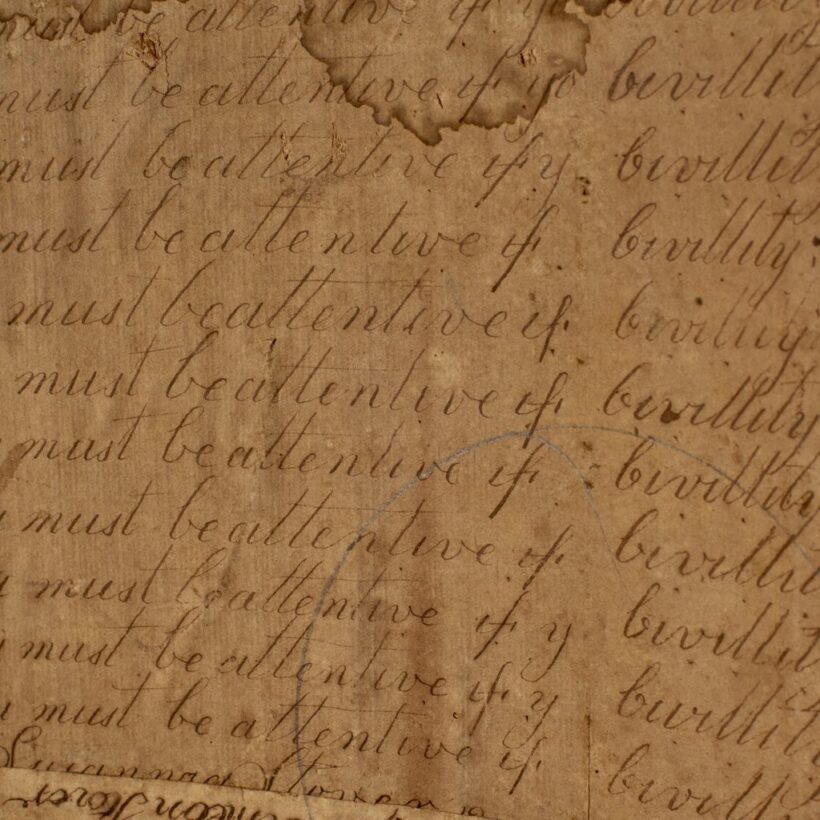 must be attentive if yo
must be attentive if yo Civillit
must be attentive if y Civillit
must be attentive if Civillity
must be attentive if Civillity
must be attentive if Civillity
must be attentive if Civillity
must be attentive if Civilli
u must be attentive if y Civillit
must be attentive if y Civillit
u must be attentive if Civill